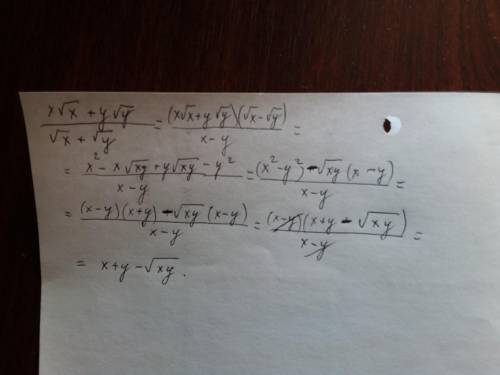 (x√x + y√y)/(√x + √y) = ((x√x + y√y)(√x − √y))/(x − y) =
= (x² − x√xy + y√xy − y²)/(x − y) = ((x² − y²) − √xy (x − y))/(x − y) =
= ((x−y)(x+y) − √xy (x−y))/(x − y) = ((x−y)(x+y − √xy))/(x−y) =
= x+y−√xy.